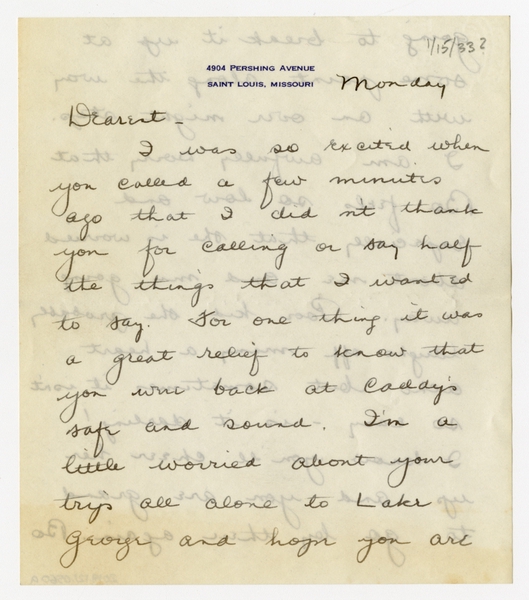 1/15/33?
4904 PERSHING AVENUE
SAINT LOUIS, MISSOURI
Monday
Dearest
I was so excited when
you called a few minutes
ago that I didn't thank
you for calling or say half
the things that I wanted
to say. For one thing it was
a great relief to know that
you were back at Caddy's
safe and sound. I'm a
little worried about your
trips all alone to Lake
George and hope you are